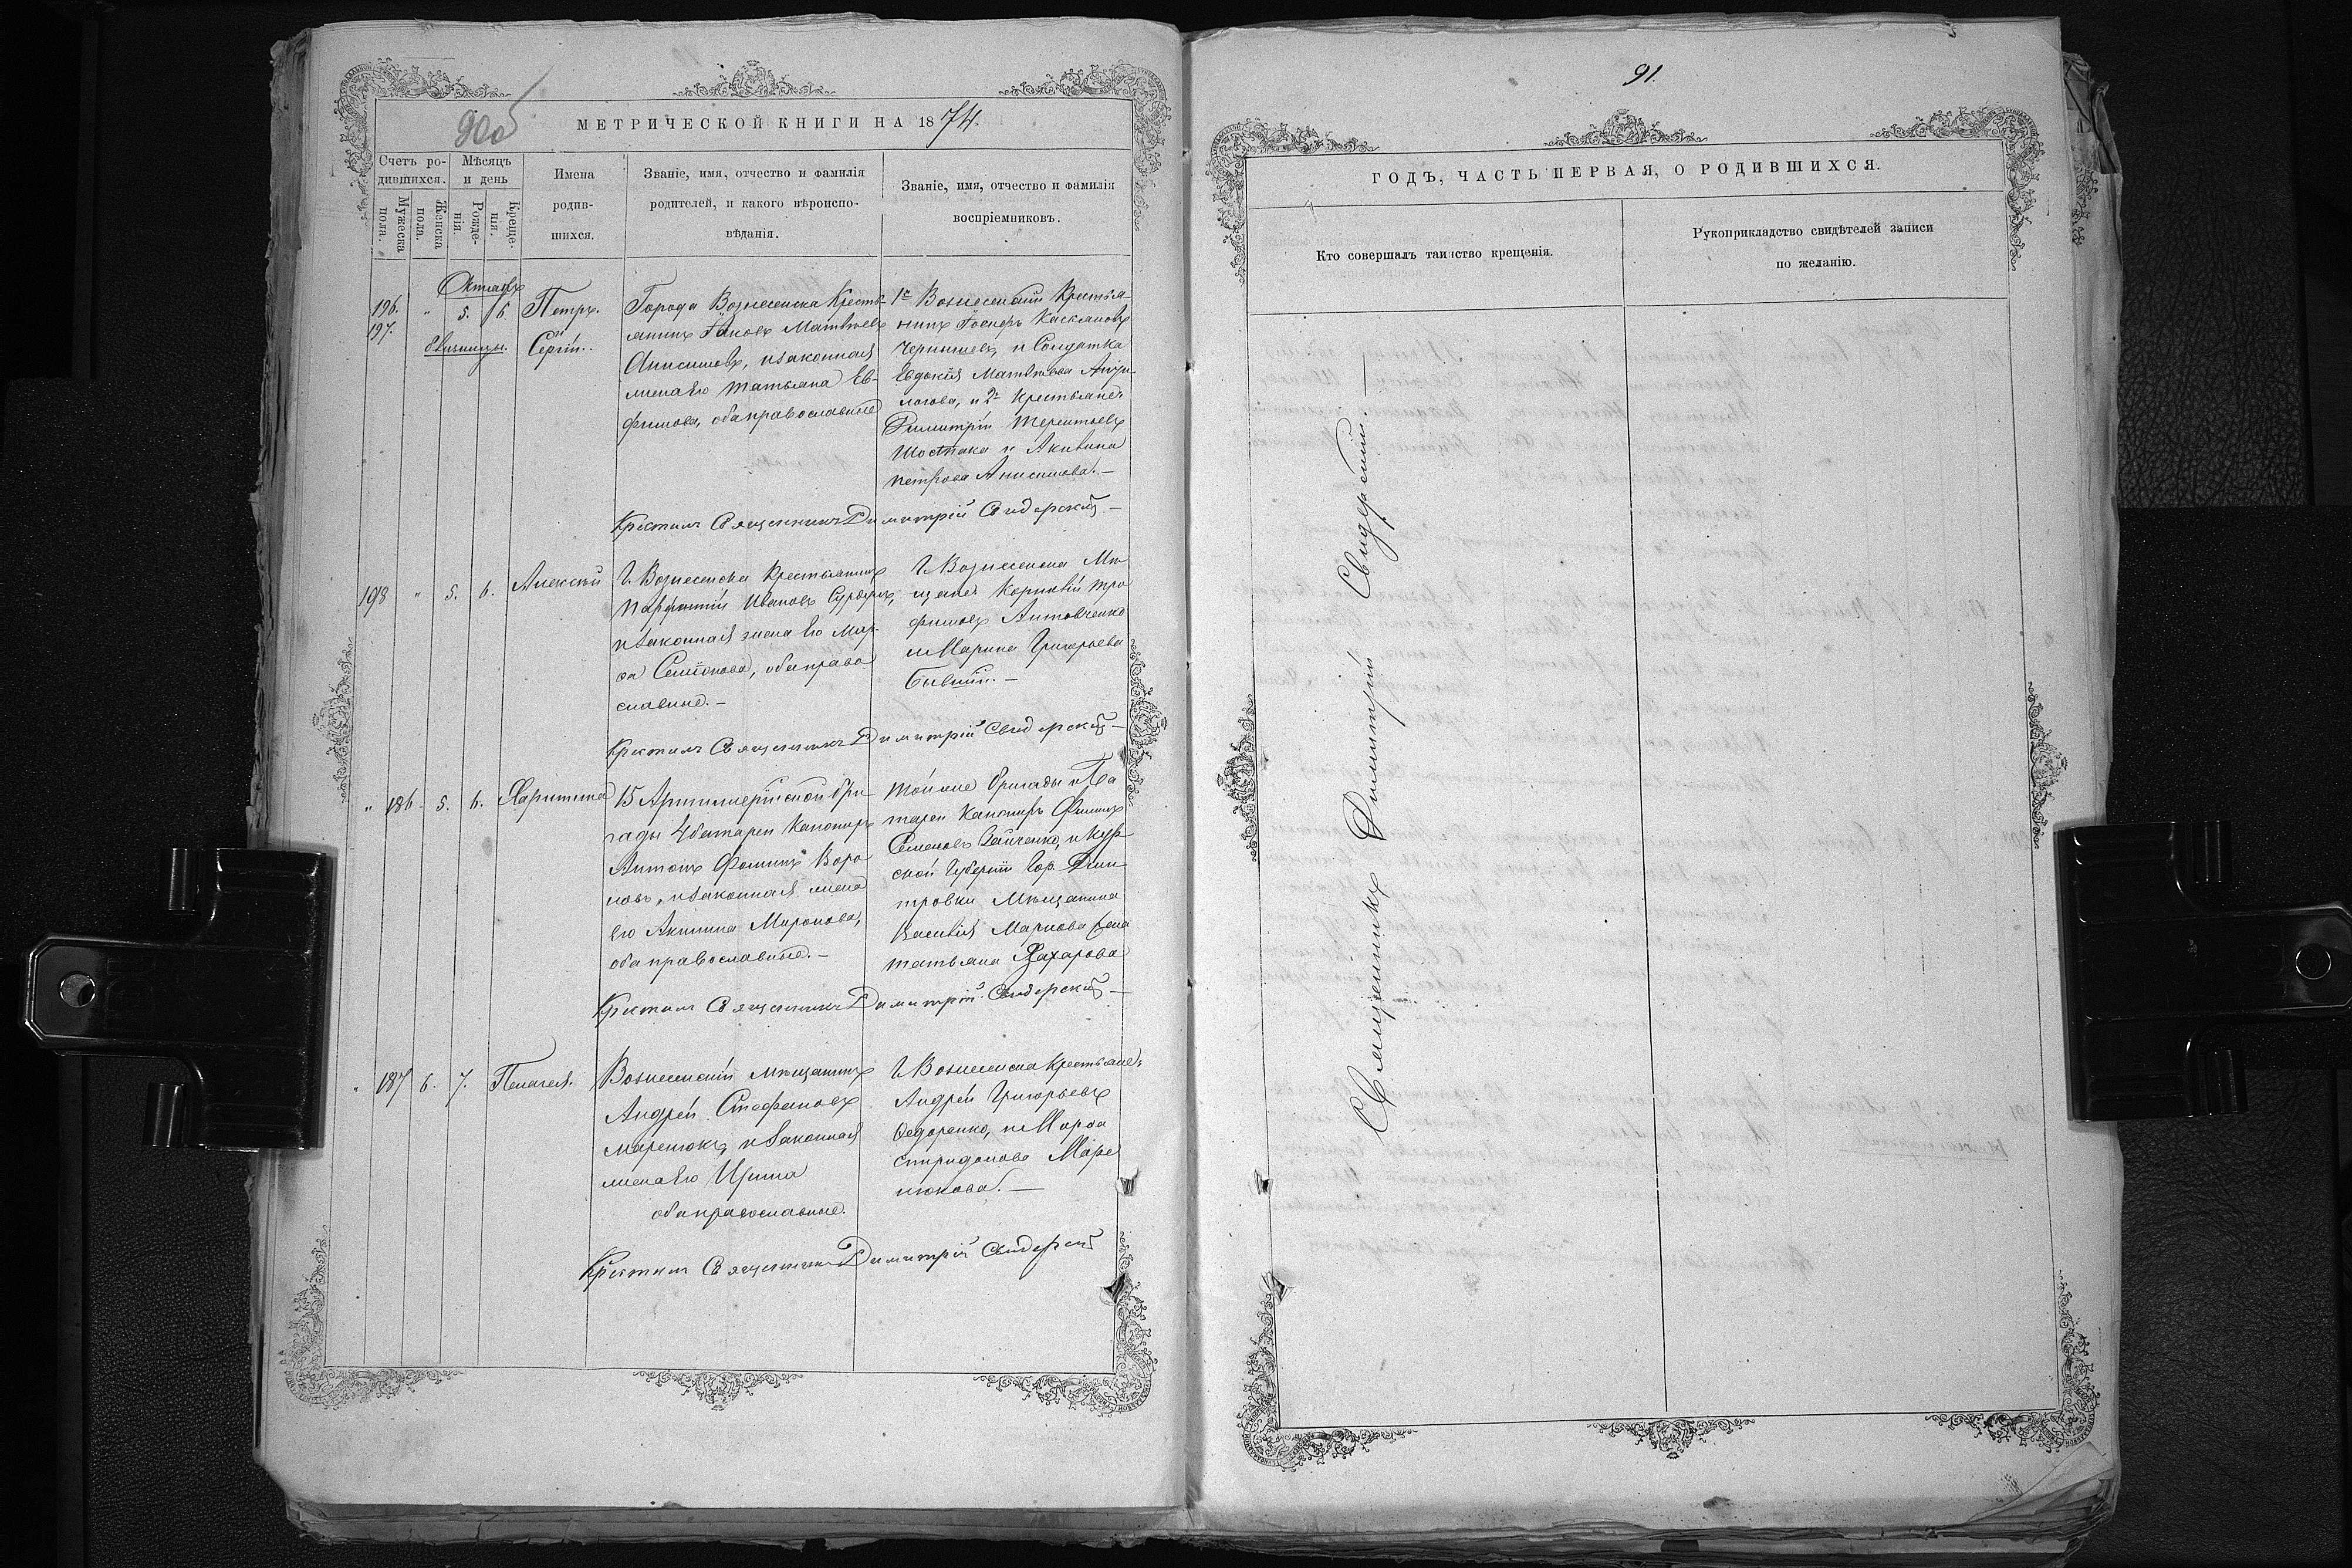 90об
МЕТРИЧЕСКОЙ КНИГИ НА 1874.
Счетъ ро-
дившихся.
Мѣсяцъ
и день
Мужеска
пола.
Женска
пола.
Рожде-
нія.
Креще-
нія.
Имена
родив-
шихся.
Званіе, имя, отчество и фамилія
родителей, и какого вѣроиспо-
вѣданія.
Званіе, имя, отчество и фамилія
воспріемниковъ.
196.
197.
"
5.
6.
Близнецы.
Петръ.
Сергій.
Города Вознесенска Кресть-
янинъ Іаковъ Матвѣевъ
Анисимовъ, и законная
жена его Татьяна Ев-
фимова, оба православные
1е Вознесенскій Крестья-
нинъ Іосифъ
Чернышевъ, и Солдатка
Евдокія Матвѣева
и 2е Крестьяне
Димитрій Терентьевъ
Шостака и Акилина
Петрова Анисимова.—
Крестилъ Священникъ Димитрій Свидерскій.—
198 " 5. 6.
Алексѣй
Г. Вознесенска Крестьянинъ
Парфентій Ивановъ
и законная жена его Мар-
ѳа Семіонова, оба право
славные.—
Г. Вознесенска Мѣ
щане Корнилій Тро
фимовъ Антовченко
и Марина Григорьева
Крестилъ Священникъ Димитрій Свидерскій—
" 186. 5. 6.
Харитина
15 Артиллерійской бри-
гады 4 батареи Канониръ
Антонъ Фоминъ Воро
новъ, и законная жена
его Акилина Миронова,
оба православные.—
Той же бригады и ба
тареи Канониръ Филипъ
Семеновъ Зайченко, и Кур
ской Губерніи Гор. Дми-
тровки Мѣщанина
Василія Маркова жена
Татьяна Захарова
Крестилъ Священникъ Димитрій Свидерскій—
" 187 6. 7.
Пелагея.
Вознесенскій мѣщанинъ
Андрей Стефановъ
Маренюкъ, и законная
жена его Ирина
оба православные.
Г. Вознесенска Крестьяне:
Андрей Григорьевъ
Федоренко, и Марѳа
Спиридонова Маре
нюкова.—
Крестилъ Священникъ Димитрій Свидерскій
91.
ГОДЪ, ЧАСТЬ ПЕРВАЯ, О РОДИВШИХСЯ.
Кто совершалъ таинство крещенія.
Рукоприкладство свидѣтелей записи
по желанію.
Священникъ Димитрій Свидерскій.—